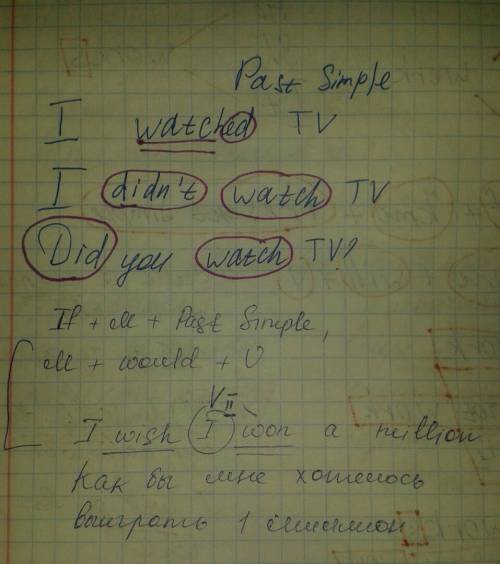 Past Simple
I watched TV
I didn't watch TV
Did you watch TV?
If + М + Past Simple,
М + would + V
V II
I wish I won a million
Как бы мне хотелось
выиграть 1